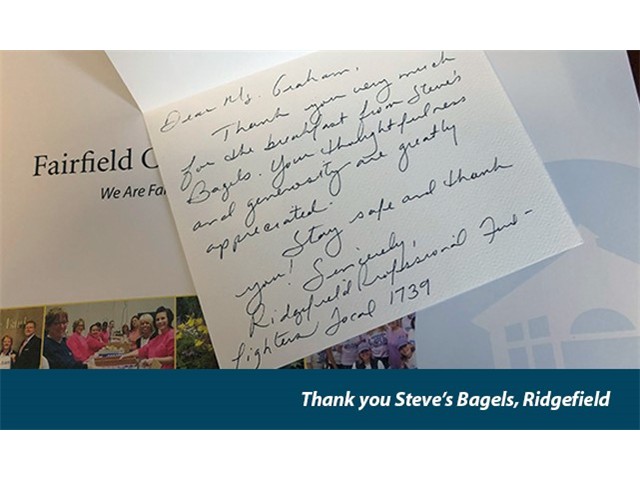 Fairfield C
We Are Fai
Dear Ms. Graham,
Thank you very much
for the breakfast from Steve's
Bagels. Your thoughtfulness
and generosity are greatly
appreciated.
Stay safe and thank
you! Sincerely,
Ridgefield Professional Fire-
fighters Local 1739
Thank you Steve's Bagels, Ridgefield